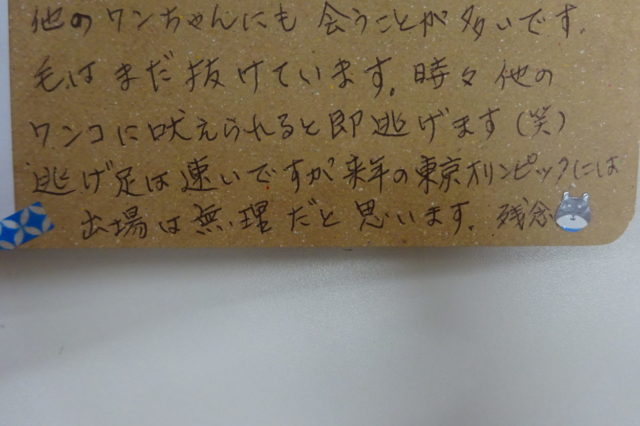 他のワンちゃんにも会うことが多いです。
毛はまだ抜けています。時々他の
ワンコに吠えられると即逃げます(笑)
逃げ足は速いですが来年の東京オリンピックには
出場は無理だと思います。残念